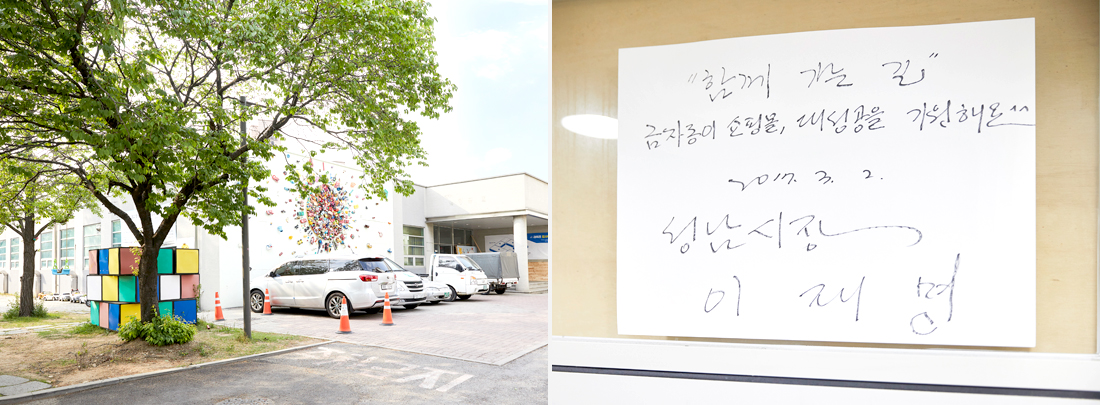 "함께 가는 길"
금자동이 쇼핑몰, 대성공을 기원해요^^
2017. 3. 2.
성남시장
이 재 명